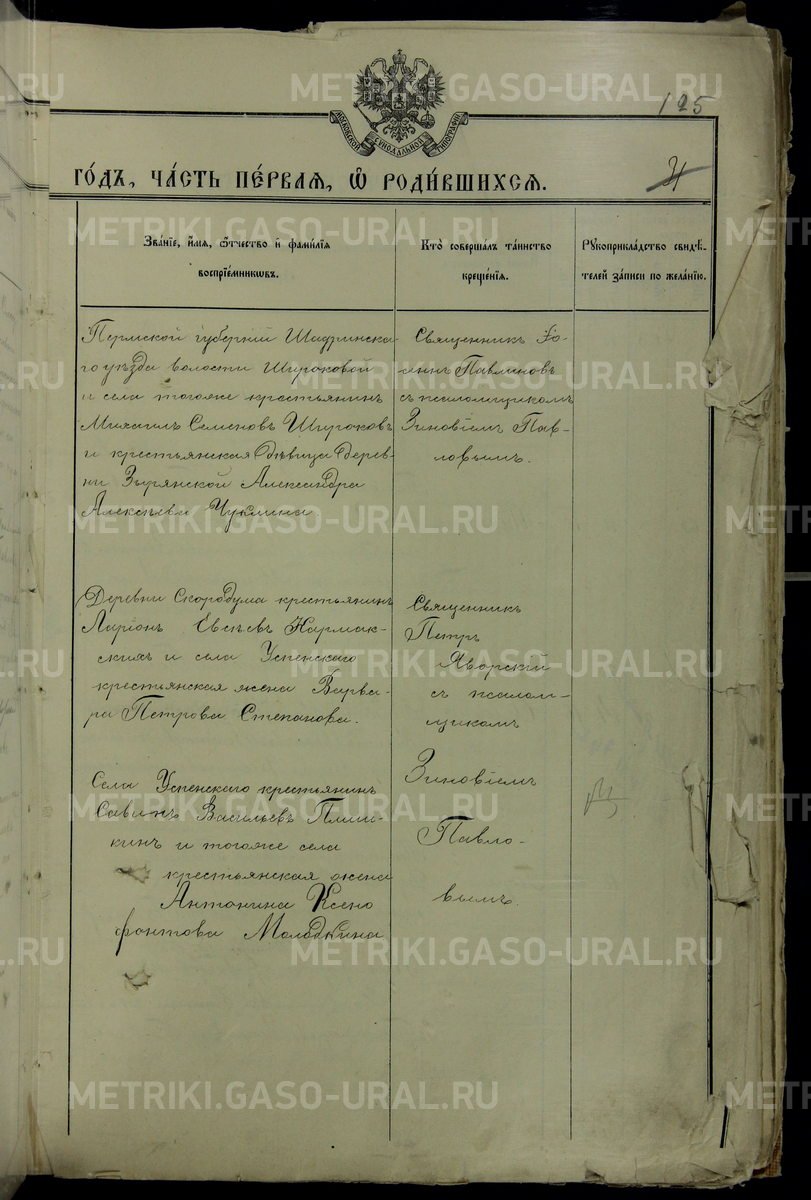 125
МОСКОВСКОЙ СѴНОДАЛЬНОЙ ТИПОГРАФІИ
ГО́ДЪ, ЧА́СТЬ ПЕ́РВАЯ, Ѡ҆ РОДИ́ВШИХСЯ.
31
Зва́нїе, и҆́мя, ѻ҆́тчество и҆ фами́лїя
воспрїе́мникѡвъ.
Кто̀ соверша́лъ та́инство
креще́нїя.
Рꙋкоприкла́дство свидѣ́-
телей за́писи по жела́нїю.
Пермской губерніи Шадринска-
го уѣзда волости Широковой
и села тогоже крестьянинъ
Михаилъ Семеновъ Широковъ
и крестьянская дѣвица дерев-
ни Зырянской Александра
Алексѣева Чуклина.
Священникъ Іо-
аннъ Павлиновъ
съ псаломщикомъ
Зиновіемъ Пав-
ловымъ.
Деревни Скородума крестьянинъ
Ларіонъ Евсѣевъ Кармак-
скихъ и села Успенскаго
крестьянская жена Варва-
ра Петрова Степанова.
Священникъ
Петръ
Яворскій
съ псалом-
щикомъ
Зиновіемъ
Павло-
вымъ.
Села Успенскаго крестьянинъ
Савинъ Васильевъ Плиш-
кинъ и тогоже села
крестьянская жена
Антонина Ксено
фонтова Молодкина
METRIKI.GASO-URAL.RU